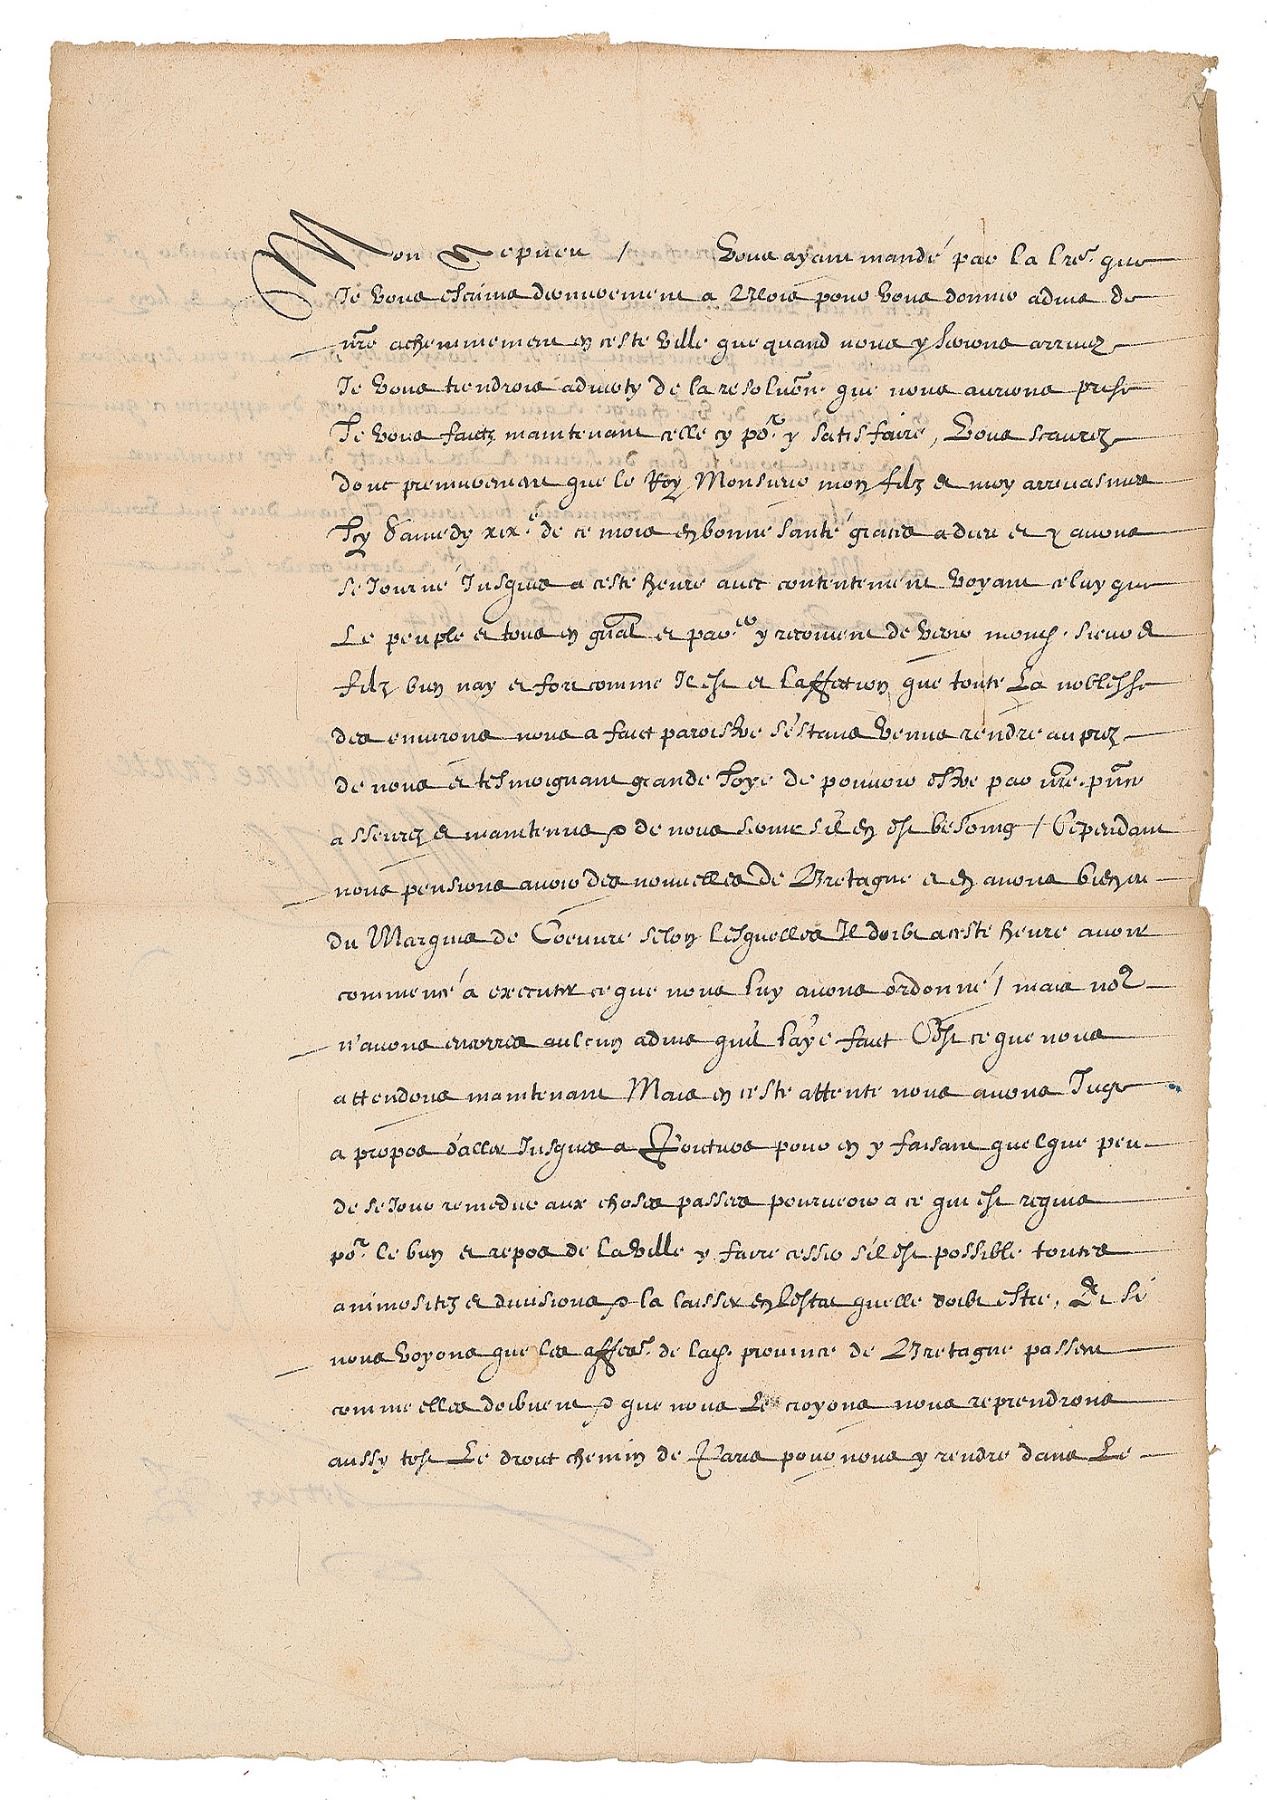 Mon Nepueu / Vous ayant mandé par la lre. que
Je vous escrivis dernierement a Blois pour vous donner advis de
nre acheminement en ceste ville que quand nous y serions arrivez
Je vous tiendrois adverty de la resolu~on que nous aurions prise
Je vous faictz maintenant celle cy po.r y satisfaire, Vous scaurez
donc premierement que le Roy Monsieur mon filz et moy arrivasmes
Icy Samedy xix.e de ce mois en bonne santé graces a dieu et y avons
seJourné Jusques a ceste heure avec contentement voyant celuy que
Le peuple et tous en gnal et par.er y recoivent de veoir mond. sieur et
filz bien nay et fort comme Il est et laffection que toute La noblesse
des environs nous a faict paroistre s'estans venus rendre au prez
de nous et tesmoignant grande Joye de pouvoir estre par nre. pnce
asseurez et maintenus & de nous servir s'il en est besoing / Cependant
nous pensions avoir des nouvelles de Bretagne et en avons bien eu
du Marquis de Coeuvre selon lesquelles Il doibt a ceste heure avoir
commencé a executer ce que nous luy avons ordonné / mais no.s
n'avons encores aulcun advis quil l'aye faict C'est ce que nous
attendons maintenant Mais en ceste attente nous avons Jugé
a propos d'aller Jusques a Poictiers pour en y faisant quelque peu
de seJour remedier aux choses passees pourveoir a ce qui est requis
po.r le bien et repos de la ville y faire cesser s'il est possible toutes
animositez et divisions & la laisser en l'estat quelle doibt estre, Et si
nous voyons que les affres. de lad. province de Bretagne passent
comme elles doibvent & que nous Le croyons nous reprendrons
aussy tost Le droict chemin de Paris pour nous y rendre dans Le